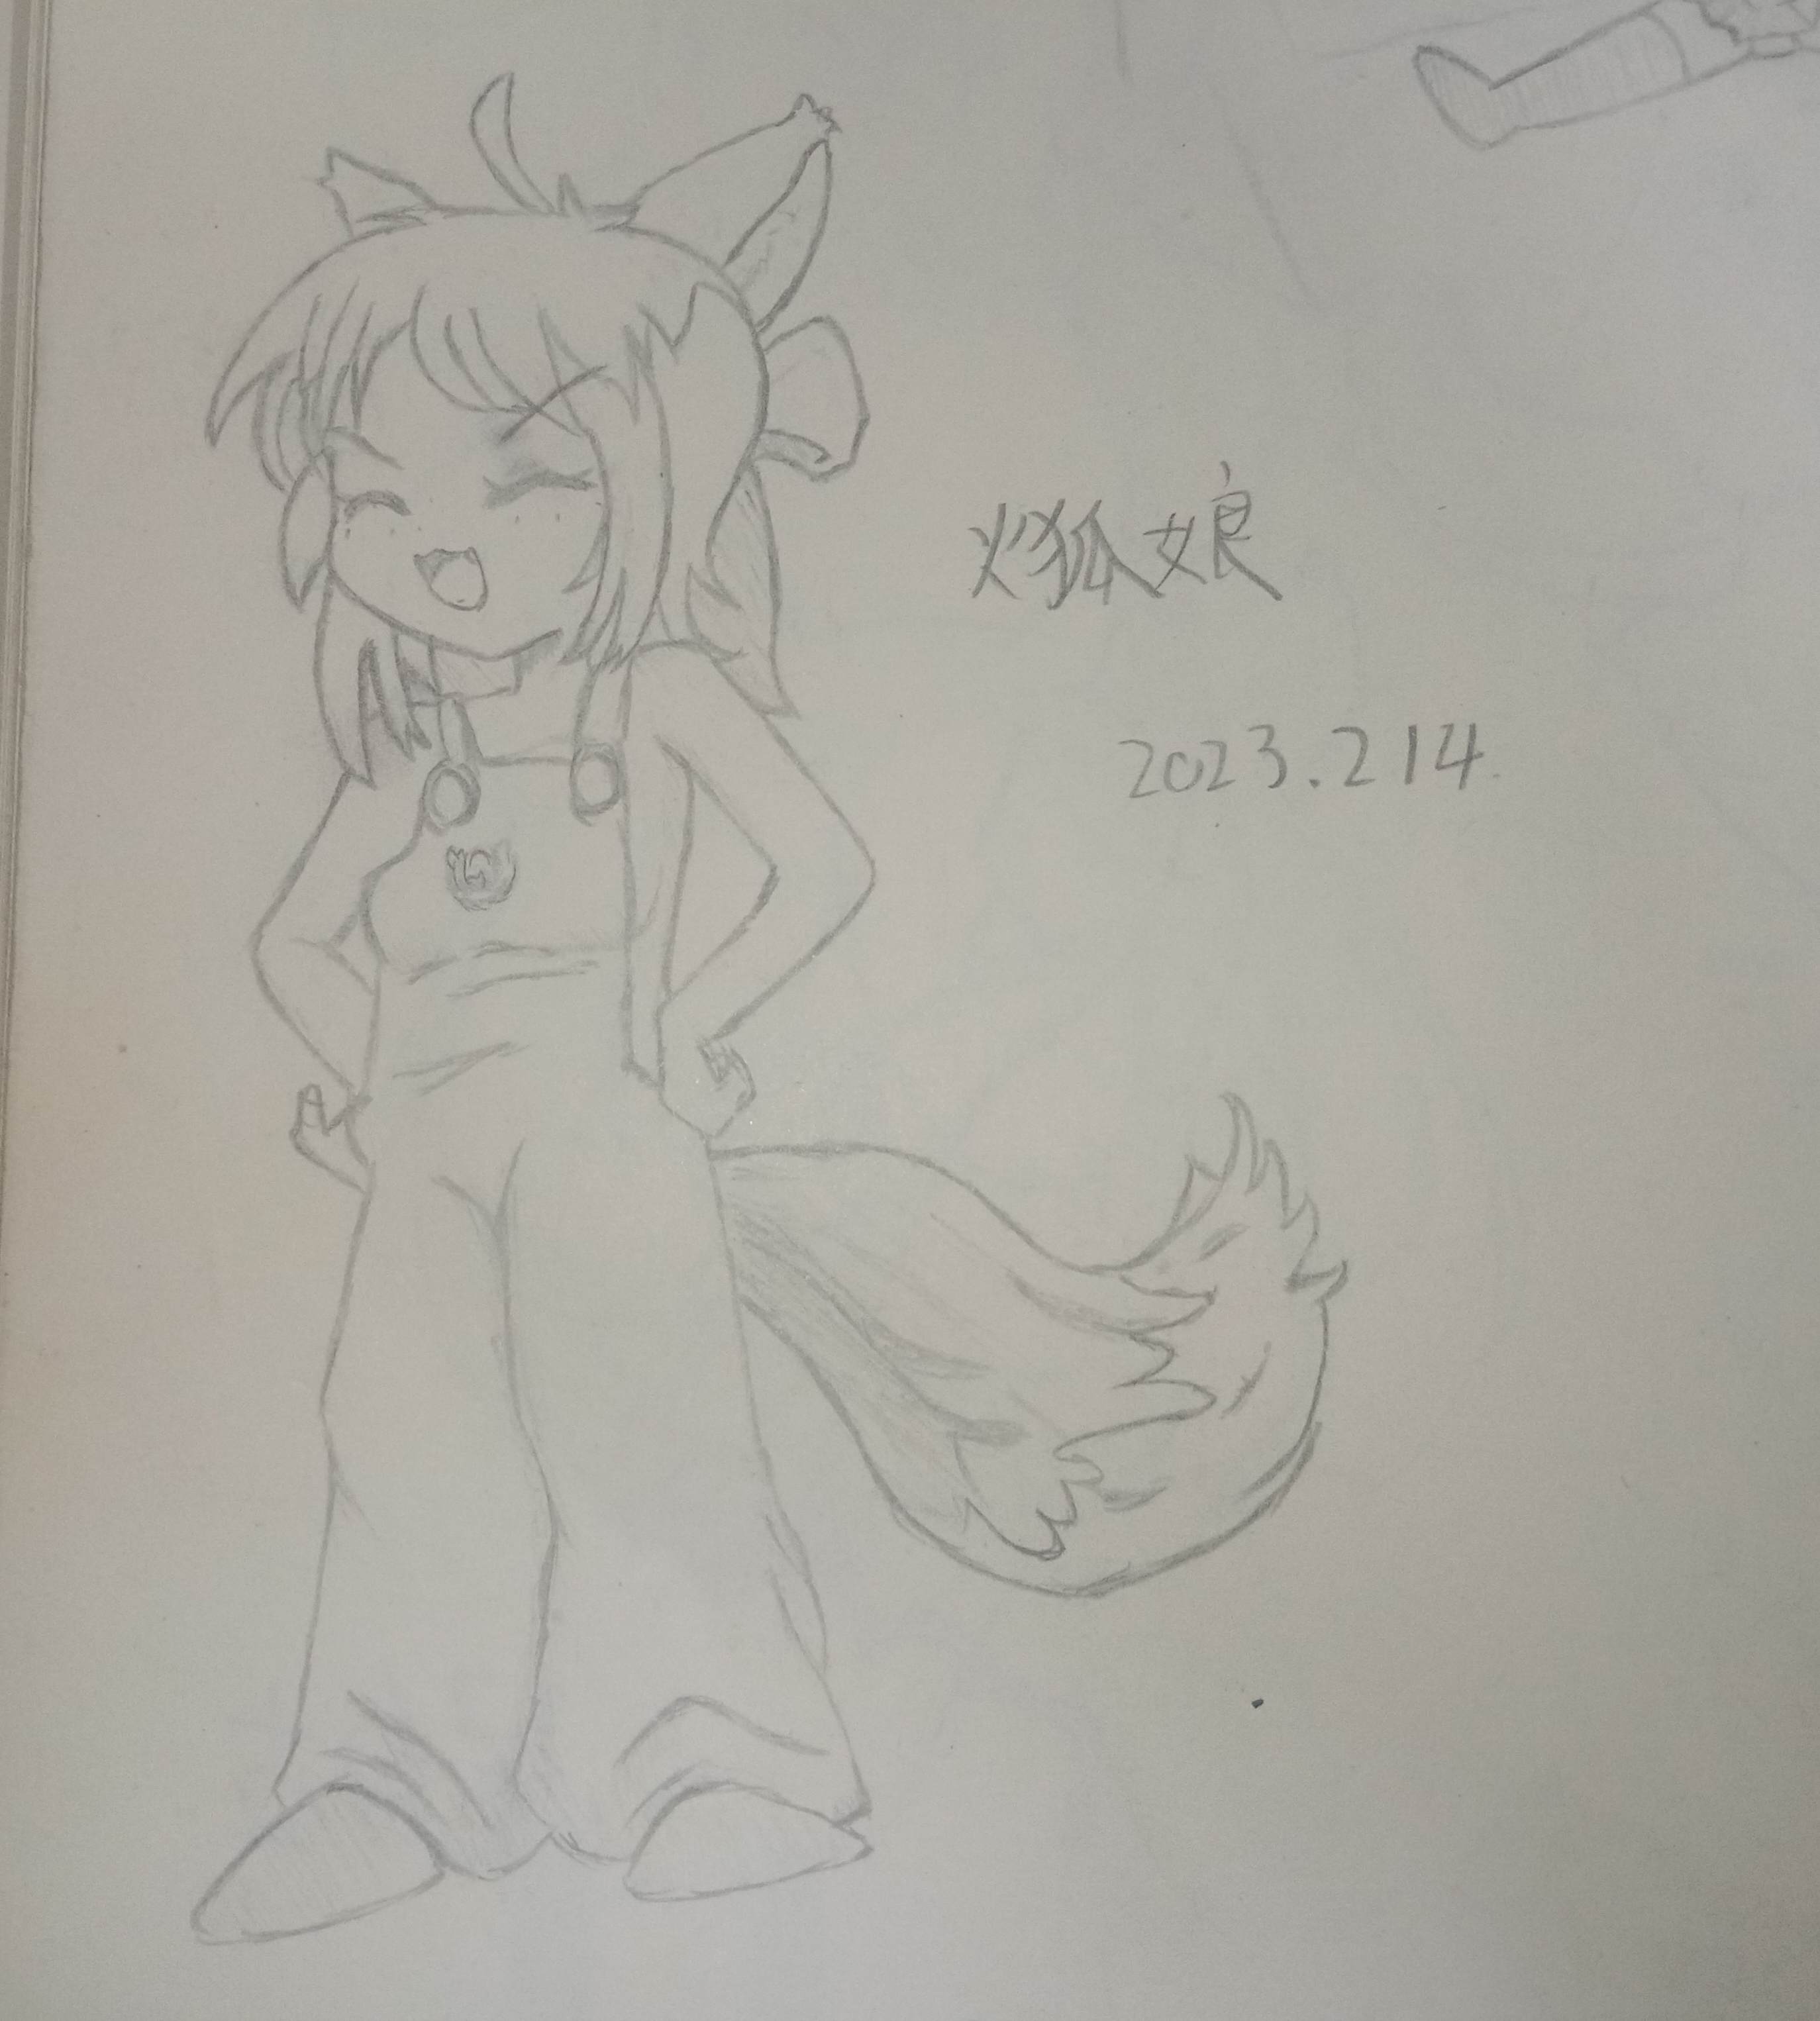 火狐娘
2023.214